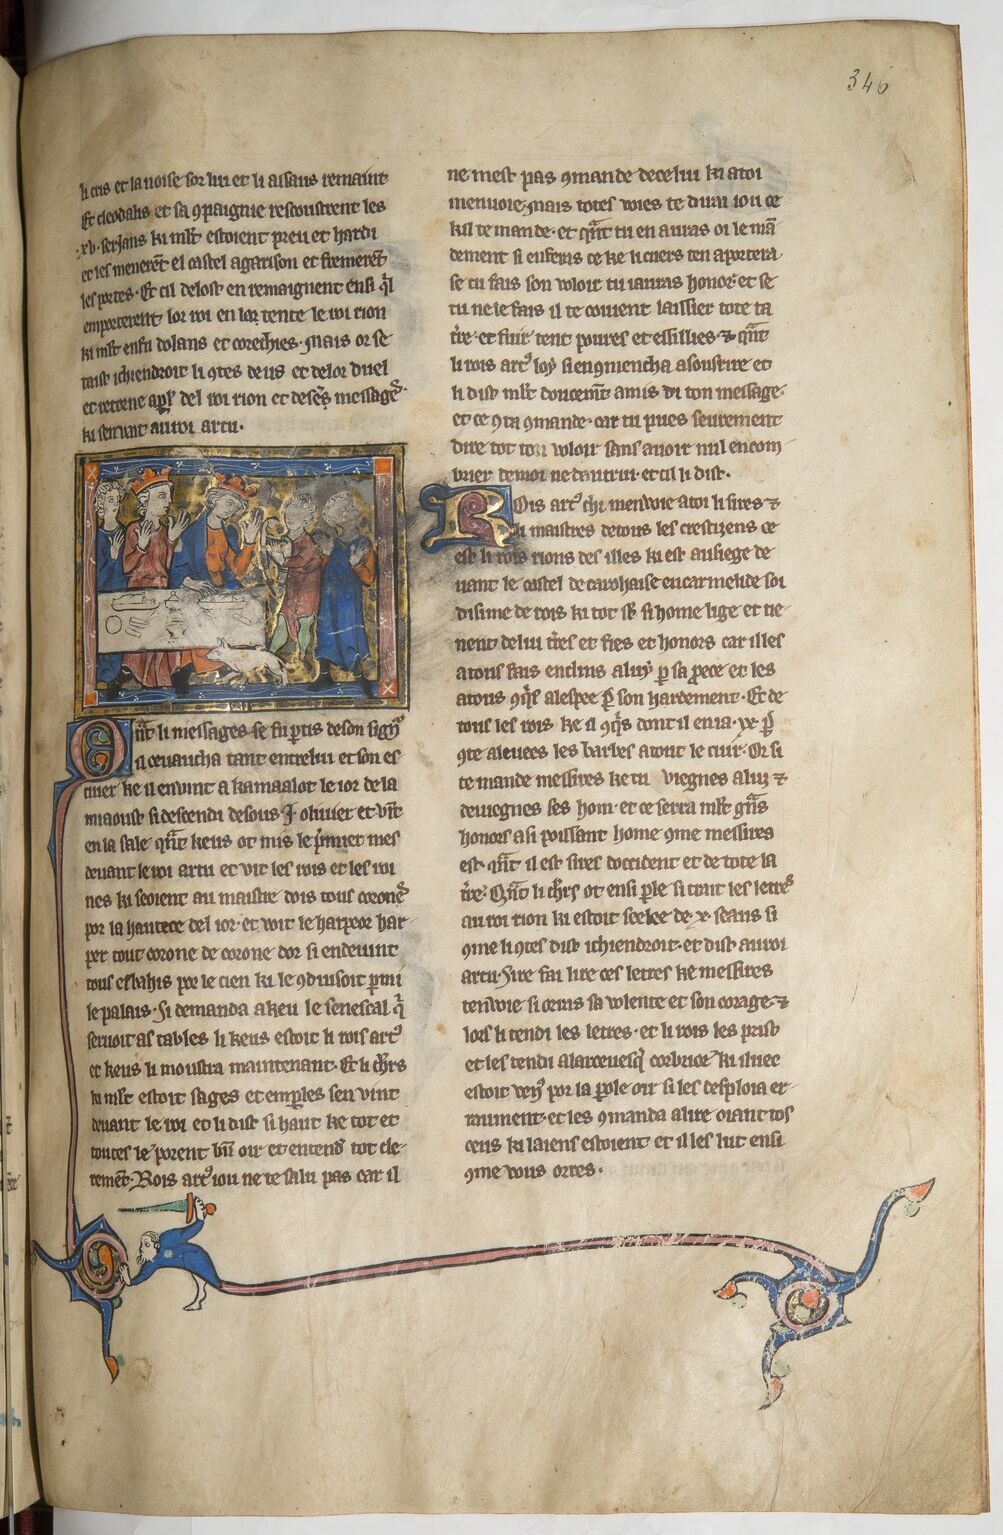 346
li cris et la noise sor lui et li assaus remaint
Et cleodalis et sa ꝯpaignie rescoustrent les
.xv. serjans ki mlt̄ estoient preu et hardi
et les menerēt el castel a garison et fremerēt
les portes. Et cil delost en remaignent ensi q̄l
emporterent lor roi en lor tente le roi rion
ki mlt̄ en fu dolans et corechies. Mais or se
taist ichi endroit li ꝯtes deus et de lor duel
et retorne a pꝉer del roi rion et de ses messagꝰ
ki sen vait au roi artu.
Qāt li messages se fu ꝑtis de son signꝰ
il cevaucha tant entre lui et son es
cuier ke il en vint a kamaalot le ior de la
miaoust si descendi desous .I. oliuier et vīt
en la sale qāt keus ot mis le p̄mier mes
devant le roi artu et vit les rois et les roi
nes ki seoient au maistre dois tous coronēs
por la hautece del ior. et voit le harpeor har
per tout corone de corone dor si en deuint
tous esbahis por le cien ki le ꝯduisoit ꝑmi
le palais. Si demanda a keu le senescal q̄
seruoit as tables li keus estoit li rois artꝰ
et keus li moustra maintenant. Et li chrs
ki mlt̄ estoit sages et emꝑles sen vint
devant le roi et li dist si haut ke tot et
toutes le porent biē oir et entendꝰ tot cle
remēt. Rois artꝰ iou ne te salu pas car il
ne mest pas ꝯmande de celui ki a toi
menuoie. Mais totes voies te dirai iou ce
kil te mande. et qāt tu en auras oi le mā
dement si en feras ce ke li cuers ten aportera.
se tu fais son voloir tu i auras honor et se
tu ne le fais il te couient laissier tote ta
t̄re. et fuir tent poures et essillies. ⁊ qāt
li rois artꝰ loy si en ꝯmencha a sousrire et
li dist mlt̄ doucemēt amis di ton message.
et ce ꝯ ta ꝯmande. car tu pues seurement
dire tot ton voloir sans auoir nul encom
brier de moi ne dautrui. et cil li dist.
Rois artꝰ chi menvoie a toi li sires ⁊
li maistres de tous les crestijens ce
est li rois rions des illes ki est au siege de
uant le castel de carohaise en carmelide soi
disime de rois ki tot st̄ si home lige et tie
nent de lui t̄res et fies et honors car il les
a tous fais enclins a luy ꝑ sa proece et les
a tous ꝯq̄s a lespee ꝑ son hardement. Et de
tous les rois ke il a ꝯq̄s dont il en i a .xx. ꝑ
ꝯte a leuees les barbes a tout le cuir. Or si
te mande mesires ke tu viegnes a luy ⁊
deuiegnes ses hom. et ce serra mlt̄ grās
honors a si poissant home ꝯme mesires
est. qāt il est sires doccident et de tote la
t̄re. Qāt li chrs ot ensi ꝑle si trait les lettrꝰ
au roi rion ki estoit seelee de .x. seaus si
ꝯme li ꝯtes dist ichi endroit. et dist au roi
artu. Sire fai lire ces lettres ke mesires
tenvoie si orras sa volente et son corage. ⁊
lors li tendi les lettres. et li rois les prist
et les tendi a larceuesq̄ corbrior ki iluec
estoit venꝰ por la ꝑole oir si les desploia er
raument. et les ꝯmanda a lire oiant tos
ceus ki laiens estoient et il les lut ensi
ꝯme vous orres.